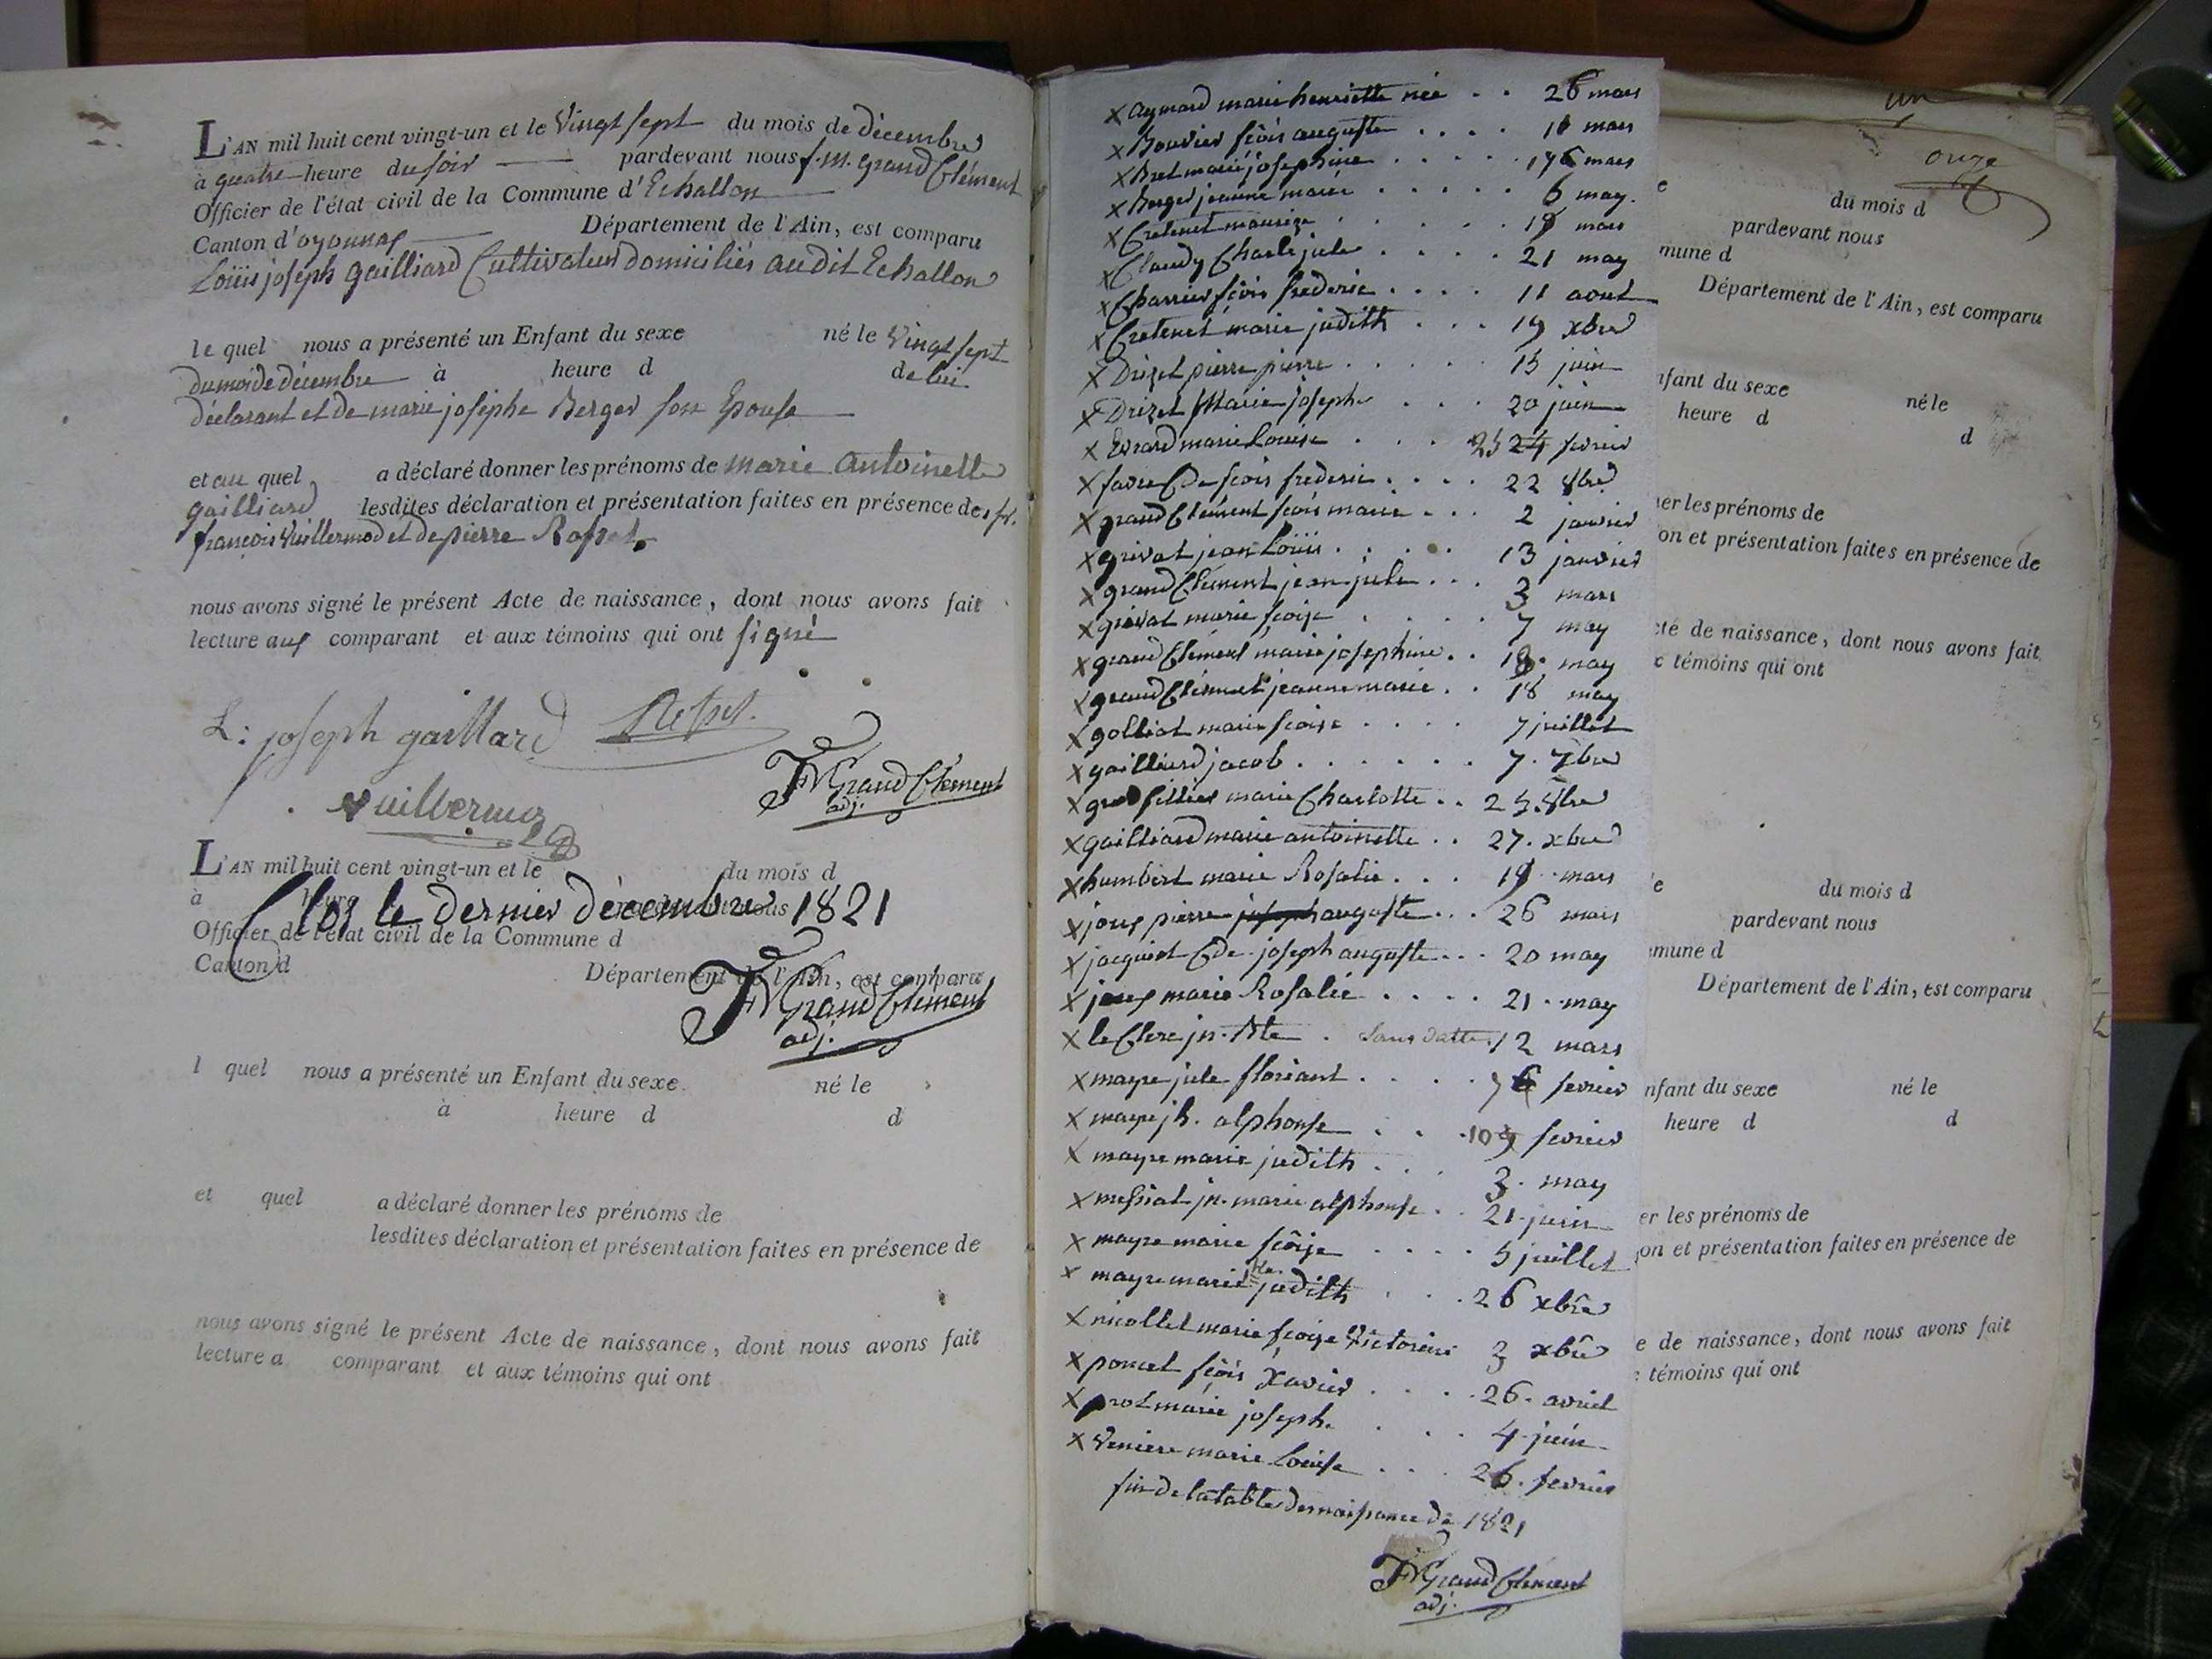 L'AN mil huit cent vingt-un et le Vingt sept du mois de décembre
à quatre heure du soir pardevant nous f. m. grand Clément
Officier de l'état civil de la Commune d'Echallon
Canton d'oyonnas Département de l'Ain, est comparu
Loüis joseph gailliard Cultivateur domiciliés audit Echallon
le quel nous a présenté un Enfant du sexe né le Vingt sept
du moi de décembre à heure d de lui
déclarant et de marie josephe Berger son Epouse
et au quel a déclaré donner les prénoms de marie antoinette
gailliard lesdites déclaration et présentation faites en présence de
françois Vuillermod et de pierre
nous avons signé le présent Acte de naissance, dont nous avons fait
lecture aux comparant et aux témoins qui ont signé
L: joseph gaillard
FM Grand Clément
adj.
L'AN mil huit cent vingt-un et le du mois d
à heure pardevant nous
Clos le dernier décembre 1821
Officier de l'état civil de la Commune d
Canton d Département de l'Ain, est comparu
FM Grand Clément
adj.
l quel nous a présenté un Enfant du sexe né le
à heure d d
et quel a déclaré donner les prénoms de
lesdites déclaration et présentation faites en présence de
nous avons signé le présent Acte de naissance, dont nous avons fait
lecture a comparant et aux témoins qui ont
x aymard marie henriette née . . 26 mars
x Bouvier fçois auguste . . . . mars
x Bret marie josephine . . . . . mars
x Berger jeanne marie . . . . . 6 may.
x Cretenet . . . . . mars
x Claudy Charle jule . . . . 21 may
x Charrier fçois frederic . . . . 11 aout
x Cretenet marie judith . . . 19 xbre
x Drizet pierre pierre . . . . . 15 juin
x Drizet Marie josephe . . . 20 juin
x Evrard marie Louise . . . 24 fevrier
x favre Cde fçois frederic . . . . 22 8bre
x grand Clément fçois marie . . . 2 janvier
x grivat jean Loüis . . . . . 13 janvier
x grand Clément jean jule . . . 3 mars
x grivat marie fçoise . . . . 7 may
x grand Clément marie josephine . . may
x grand Clément jeanne marie . . 18 may
x golliat marie fçoise . . . . 7 juillet
x gailliard jacob . . . . . . 7. 7bre
x marie Charlotte . . 8bre
x gailliard marie antoinette . . 27. xbre
x humbert marie Rosalie . . . mars
x joux pierre joseph auguste . . . 26 mars
x jacquiot Cde joseph auguste . . . 20 may
x joux marie Rosalie . . . . 21. may
x le Clerc jn. Bte . Sans datte 12 mars
x mayre jule floriant . . . . fevrier
x mayre jh. alphonse . . . fevrier
x mayre marie judith . . . 3. may
x messiat jn. marie alphonse . . 21. juin
x mayre marie fçoise . . . . 5 juillet
x mayre marie judith . . . 26 xbre
x nicollet marie fçoise Victorine 3 xbre
x poncet fçois Xavier . . . . 26. avril
x prot marie josephe . . . 4. juin
x Veniere marie Louise . . . 26. fevrier
fin de la table de naissance de 1821
FM Grand Clément
adj.
un
onze
du mois d
pardevant nous
mune d
Département de l'Ain, est comparu
nfant du sexe né le
heure d d
er les prénoms de
on et présentation faites en présence de
cte de naissance, dont nous avons fait
témoins qui ont
du mois d
pardevant nous
mune d
Département de l'Ain, est comparu
nfant du sexe né le
heure d d
er les prénoms de
on et présentation faites en présence de
e de naissance, dont nous avons fait
témoins qui ont